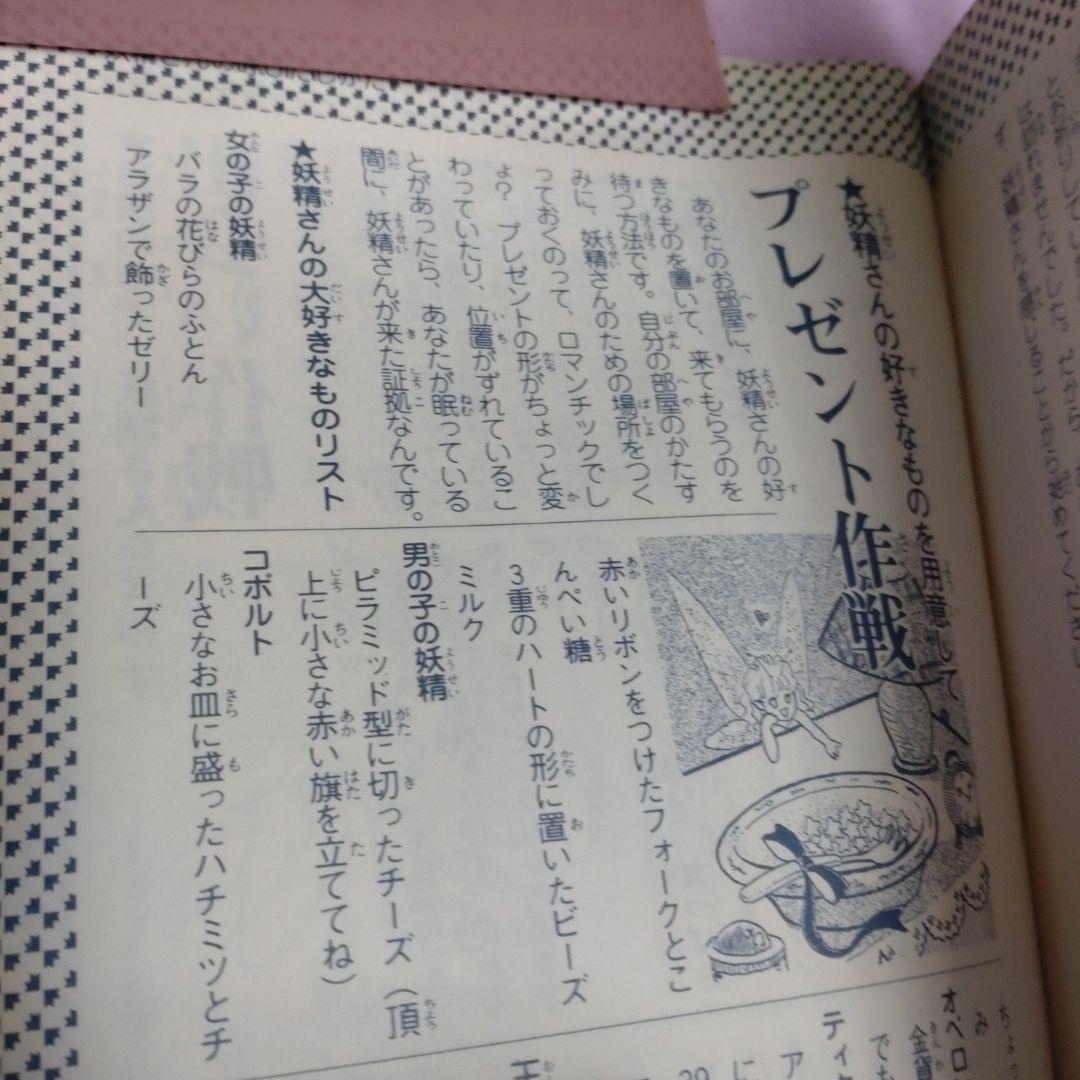 ★妖精さんの好きなものを用意して
プレゼント作戦
あなたのお部屋に、妖精さんの好
きなものを置いて、来てもらうのを
待つ方法です。自分の部屋のかたす
みに、妖精さんのための場所をつく
っておくのって、ロマンチックでし
ょ? プレゼントの形がちょっと変
わっていたり、位置がずれているこ
とがあったら、あなたが眠っている
間に、妖精さんが来た証拠なんです。
★妖精さんの大好きなものリスト
女の子の妖精
バラの花びらのふとん
アラザンで飾ったゼリー
赤いリボンをつけたフォークとこ
んぺい糖
3重のハートの形に置いたビーズ
ミルク
男の子の妖精
ピラミッド型に切ったチーズ(頂
上に小さな赤い旗を立ててね)
コボルト
小さなお皿に盛ったハチミツとチ
ーズ
ちょっ
み
オベロ
金貨
でも
ティ
ア
に
20
王